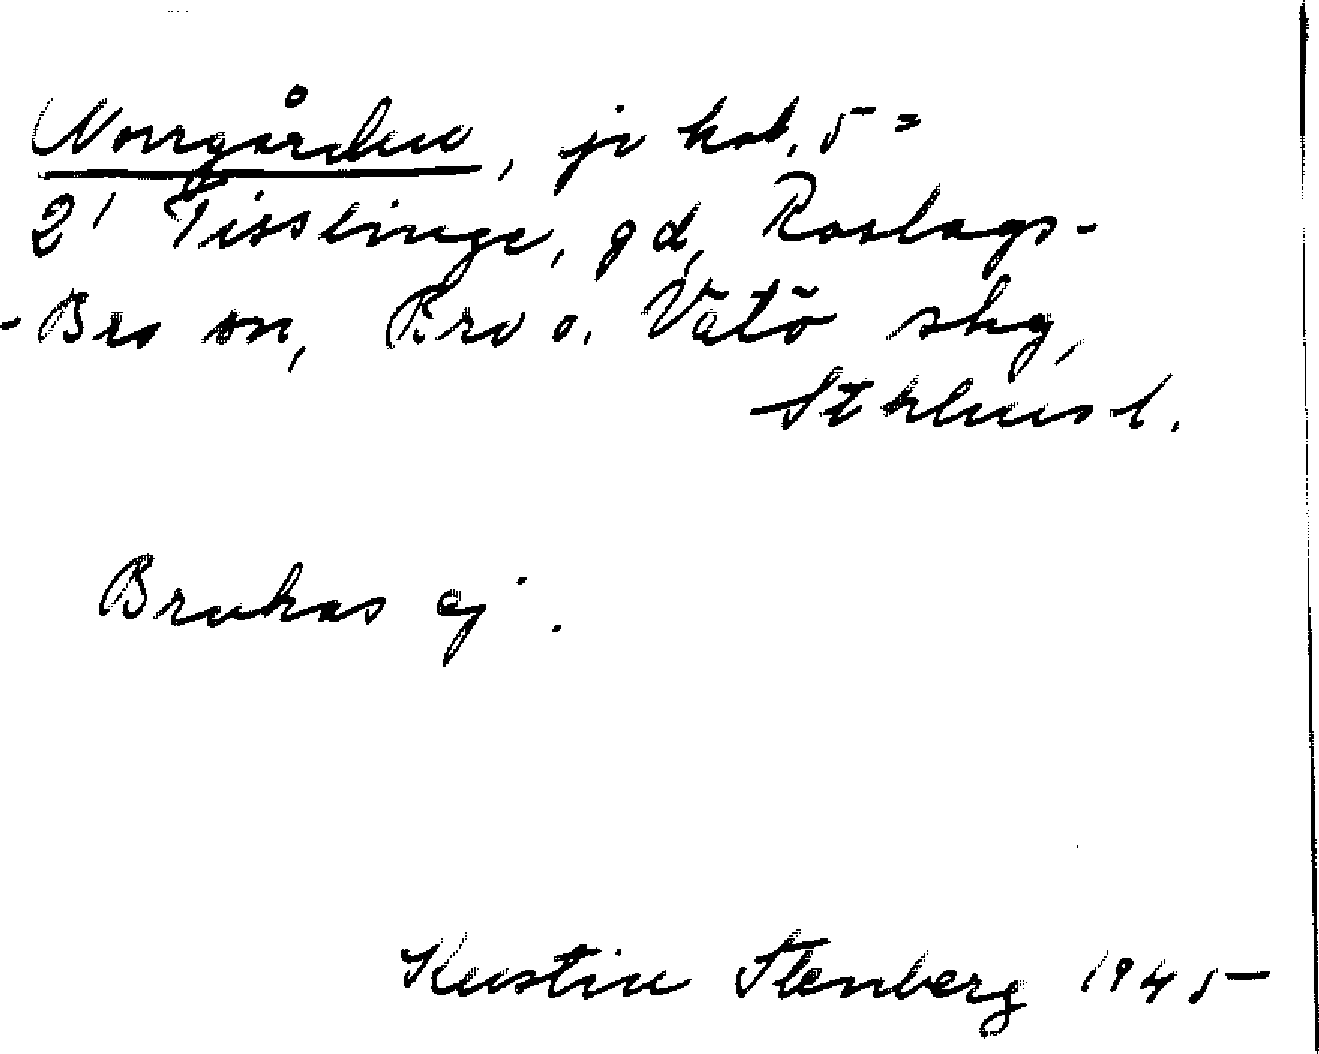 Norrgården, jr kat. 5 =
2¹ Tisslinge, gd, Roslags-
-Bro sn, Bro o. Vätö skg,
Sthlms l.
Brukas ej.
Kerstin Stenberg 1945